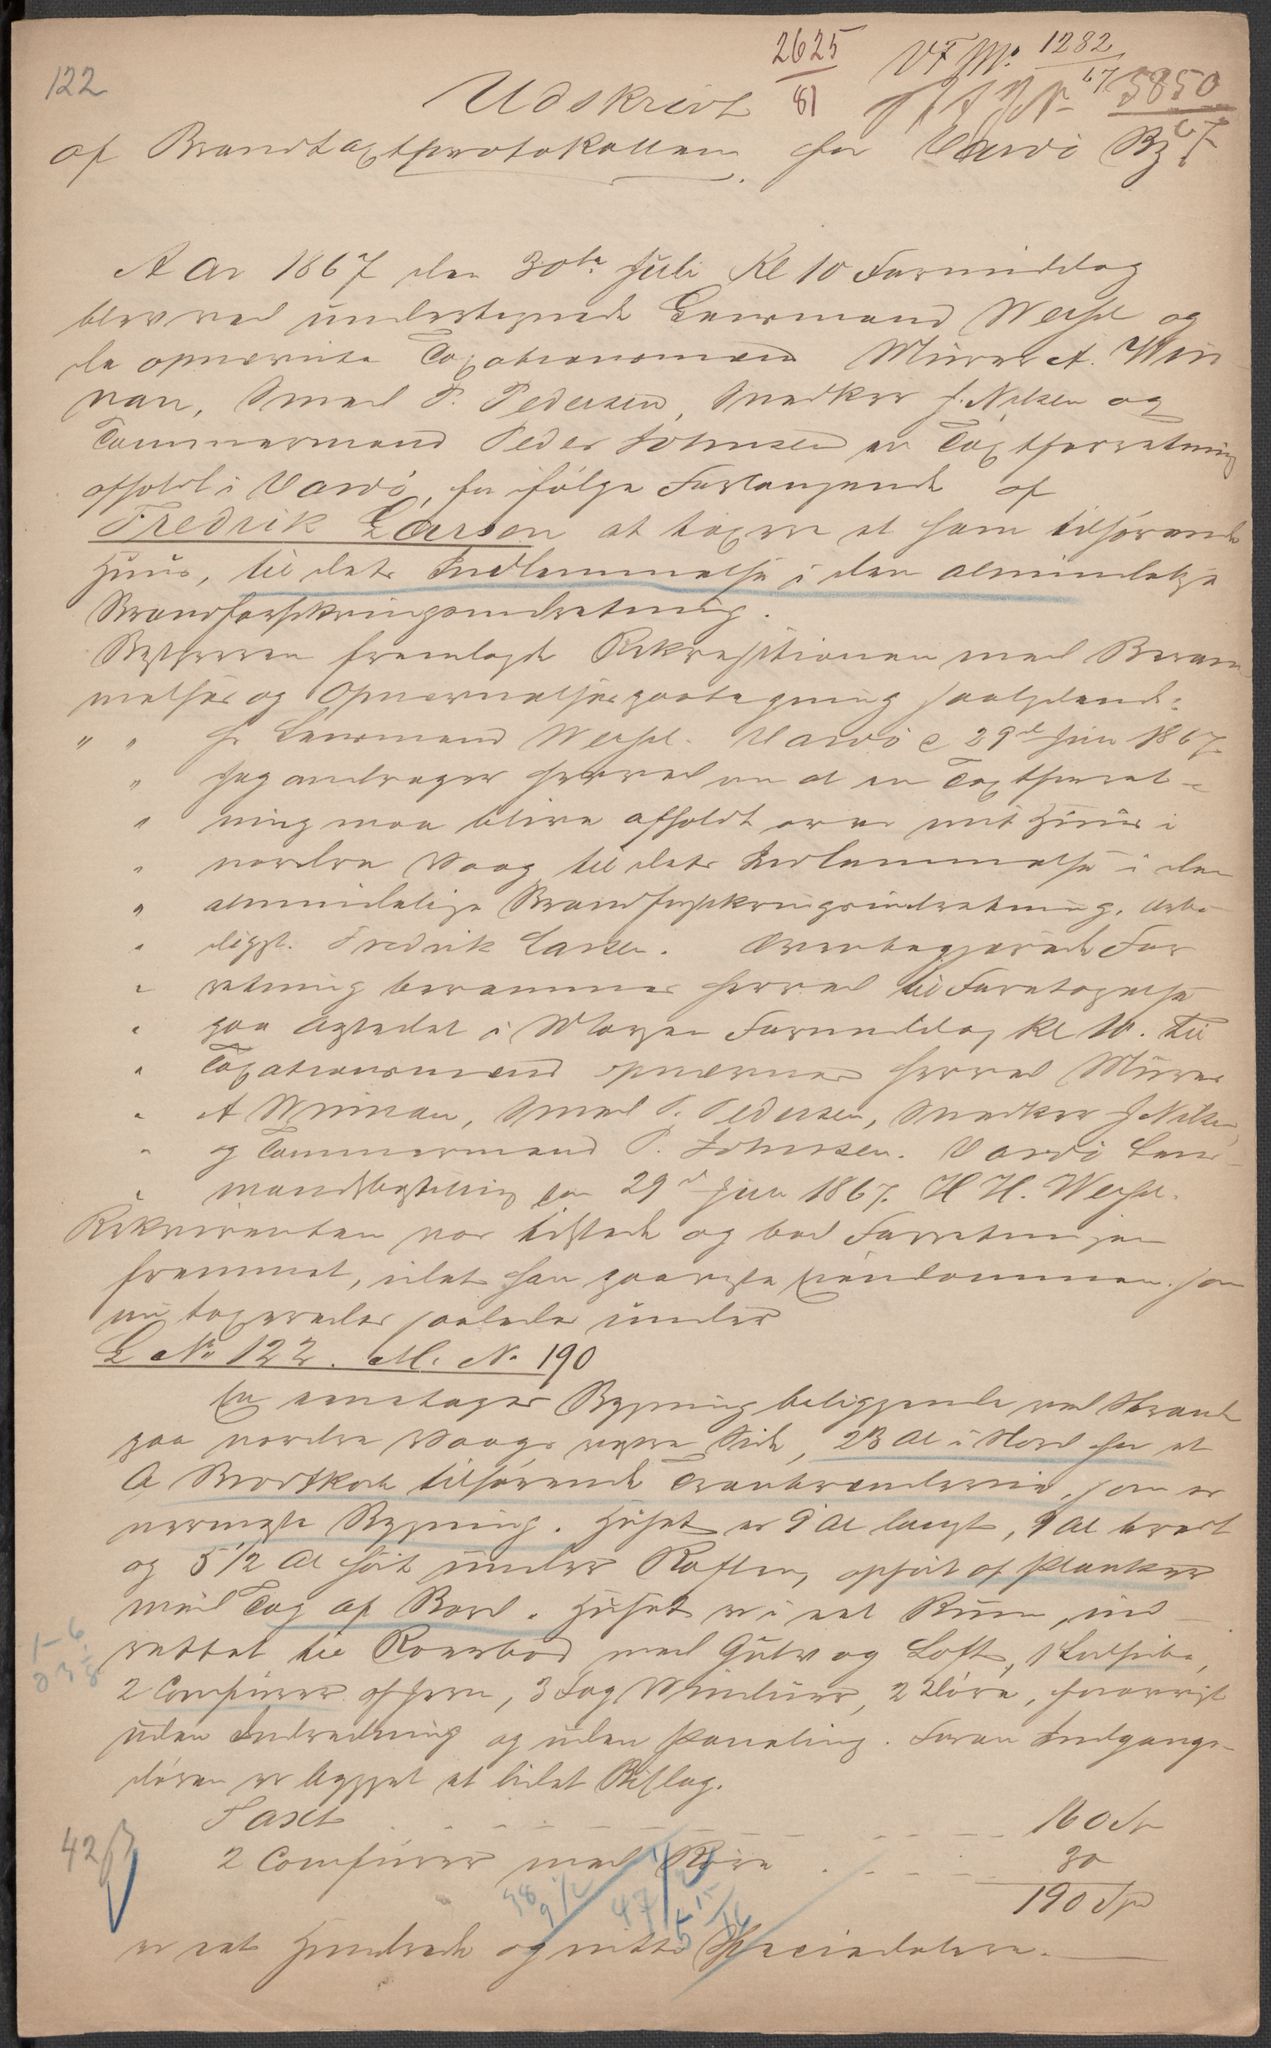 122
2625
81
VF No. 1282
67
5850
67
Udskrivt
af Brandtaxtprotokollen for Vardö By
Aar 1867 den 30te Juli Kl 10 Formiddag
blev ved undertegnede Lensmand Wessel og
de opnævnte Taxationsmænd Murer A. Win-
nan, Smed P. Pedersen, Snedker J. Nilsen og
Tømmermand Peder Johnsen en Taxtforretning
afholdt i Vardö, for ifølge Forlangende af
Fredrik Larsen at taxere et ham tilhørende
Huus, til dets Indlemmelse i den almindelige
Brandforsikringsindretning.
Bestyreren fremlagde Rekvisitionen med Beram
melses og Opnævnelsespaategning saalydende:
" " Hr Lensmand Wessel. Vardö d 29de Juli 1867.
" Jeg andrager herved om at en Taxtforret-
" ning maa blive afholdt over mit Huus i
" nordre Vaag til dets Indlemmelse i den
" almindelige Brandforsikringsindretning. Ærbø
" digst. Fredrik Larsen. Ovenbegjærede For
" retning berammes herved til Foretagelse
" paa Aastedet i Morgen Formiddag Kl 10. Til
" Taxationsmænd opnævnes herved Murer
" A Winnan, Smed P. Pedersen, Snedker J Nilsen,
" og Tømmermand P. Johnsen. Vardö Lens-
" mandsbestilling den 29de Juli 1867. H H. Wessel.
Rekvirenten var tilstede og bad Forretningen
fremmet, idet han paaviste Eiendommen. som
nu taxeredes saaledes under
L No 122. M. No 190
En eenetages Bygning beliggende ved Strande
paa nordre Vaags vestre Side, 23 Al i Nord for et
A Brodtkorb tilhørende Tranbrænderie, som er
nærmeste Bygning. Huset er 9 Al langt, 9 Al bredt
og 5 1/2 Al høit under Raften, opført af Planker
med Tag af Bord. Huset er i eet Rum, ind-
rettet til Roerbod med Gulv og Loft, 1
2 Comfurer af Jern, 3 Fag Vinduer, 2 Døre, forøvrigt
uden Indredning og uden Paneling. Foran Indgangs-
døren er bygget et lidet Bislag.
Taxt . . . . 160 Sp
2 Comfurer med Røre . . . . 30
190 Spd
er eet Hundrede og nitti Speciedalere.
42 β
47